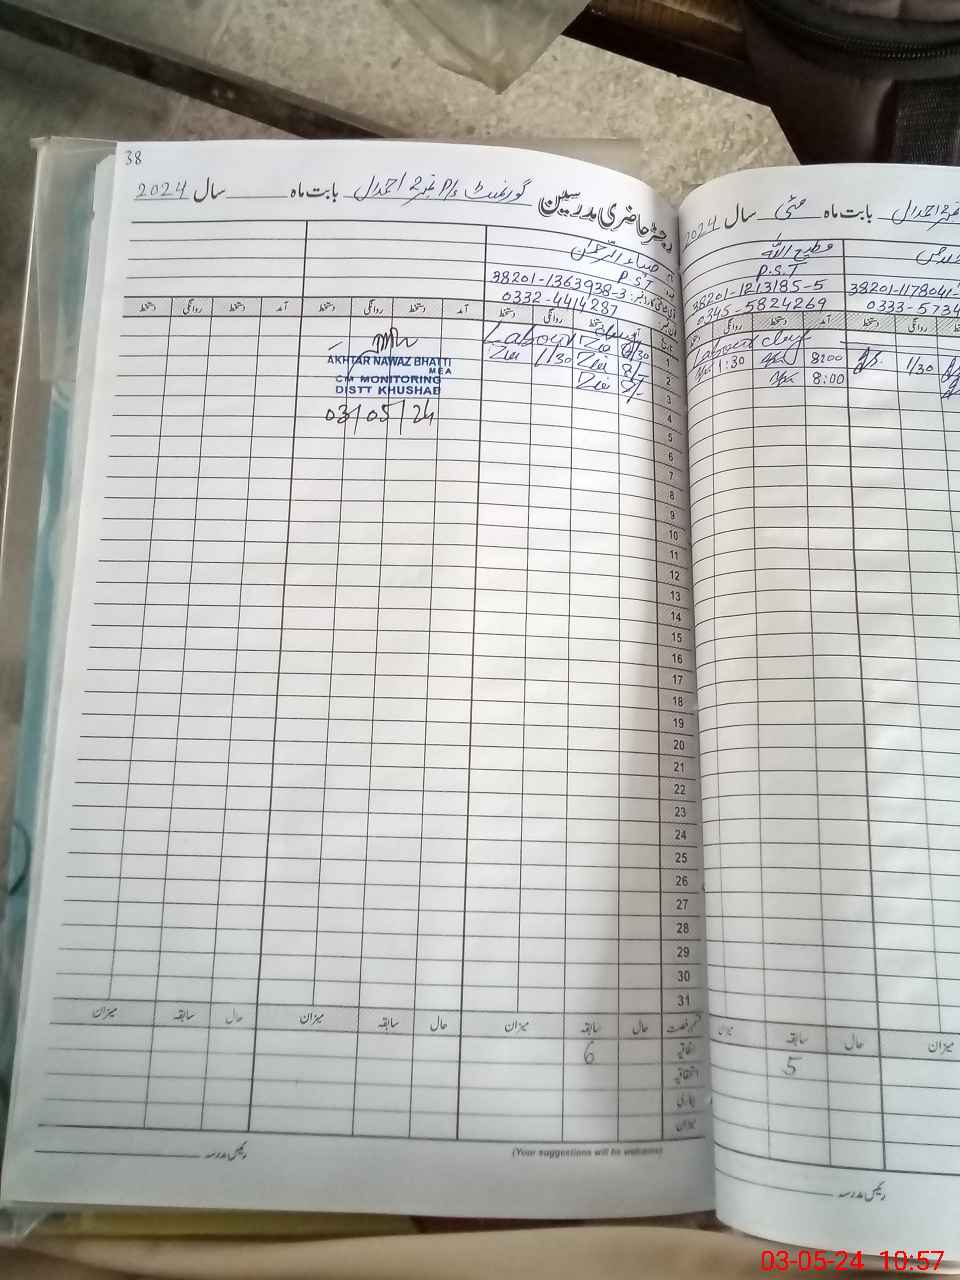 38
رجسٹر حاضری مدرسین گورنمنٹ P/s نمبر 2 احمدال بابت ماہ سال 2024
ضیاء الرحمٰن
P.S.T
38201-1363938-3
0332-4414287
آمد دستخط روانگی دستخط آمد دستخط روانگی دستخط آمد دستخط روانگی دستخط
1 Labour
2 Zia 8/- Zia 1/30
3 Zia 8/-
4
5
6
7
8
9
10
11
12
13
14
15
16
17
18
19
20
21
22
23
24
25
26
27
28
29
30
31
AKHTAR NAWAZ BHATTI
MEA
CM MONITORING
DISTT KHUSHAB
03/05/24
حال سابقہ میزان حال سابقہ میزان حال سابقہ میزان
6
اتفاقیہ
بیماری
میزان
رئیس مدرسہ
(Your suggestions will be welcome)
نمبر 2 احمدال بابت ماہ مئی سال 2024
مطیع اللہ
P.S.T
38201-1213185-5
38201-1178041-
0345-5824269
0333-5734
آمد دستخط روانگی دستخط روانگی
Labour day
8:00 1:30 1/30
8:00
میزان حال سابقہ میزان
5
رئیس مدرسہ
03-05-24 10:57